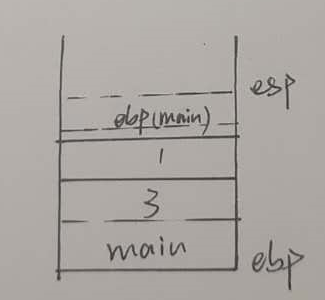 esp
ebp(main)
1
3
main
ebp